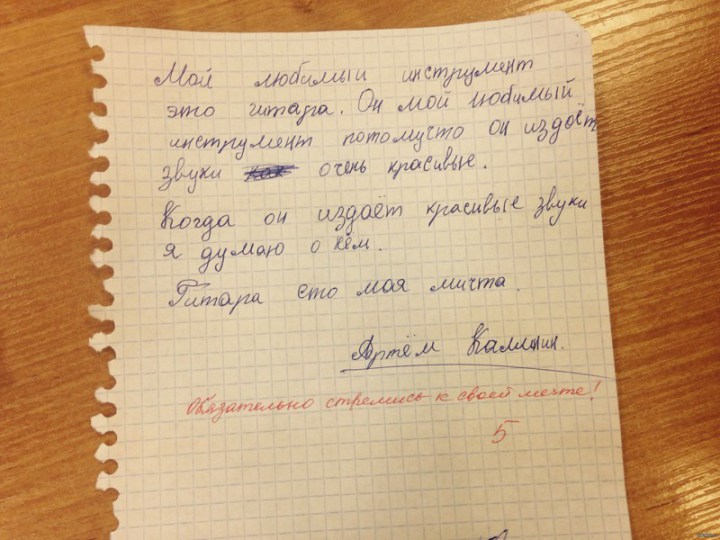 Мой любимый инструмент
это гитара. Он мой любимый
инструмент потомучто он издоёт
звуки как очень красивые.
Когда он издаёт красивые звуки
я думаю о нём.
Гитара ето моя мичта.
Артём Калинин.
Обязательно стремись к своей мечте!
5